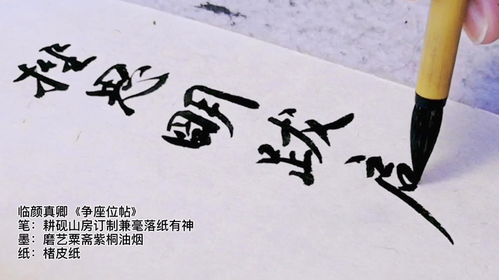 挫思明跋扈
临颜真卿《争座位帖》
笔：耕砚山房订制兼毫落纸有神
墨：磨艺粟斋紫桐油烟
纸：楮皮纸